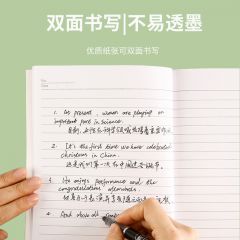 双面书写|不易透墨
优质纸张可双面书写
1. At present, women are playing an
important part in science.
目前,女性在科学领域起着重要作用
2. It's the first time we have celebrated
Christmas in China.
这是我们第一次在中国过圣诞节。
3. His performance and the
congratulations afterwards.
4. And above all